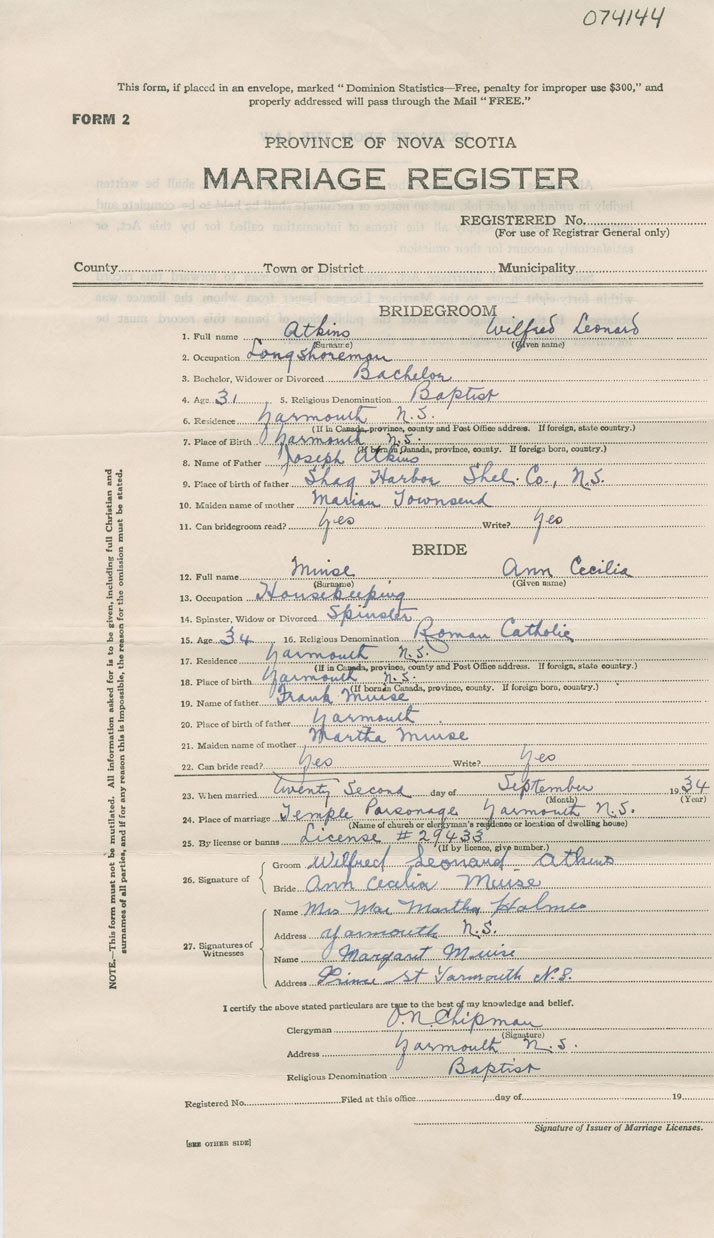 074144
This form, if placed in an envelope, marked "Dominion Statistics—Free, penalty for improper use $300," and
properly addressed will pass through the Mail "FREE."
FORM 2
PROVINCE OF NOVA SCOTIA
MARRIAGE REGISTER
REGISTERED No.
(For use of Registrar General only)
County Town or District Municipality
BRIDEGROOM
1. Full name Atkins Wilfred Leonard
(Surname) (Given name)
2. Occupation Longshoreman
3. Bachelor, Widower or Divorced Bachelor
4. Age 31 5. Religious Denomination Baptist
6. Residence Yarmouth N.S.
(If in Canada, province, county and Post Office address. If foreign, state country.)
7. Place of Birth Yarmouth N.S.
(If born in Canada, province, county. If foreign born, country.)
8. Name of Father Joseph Atkins
9. Place of birth of father Shag Harbor Shel. Co., N.S.
10. Maiden name of mother Marian Townsend
11. Can bridegroom read? Yes Write? Yes
BRIDE
12. Full name Muise Ann Cecilia
(Surname) (Given name)
13. Occupation Housekeeping
14. Spinster, Widow or Divorced Spinster
15. Age 34 16. Religious Denomination Roman Catholic
17. Residence Yarmouth N.S.
(If in Canada, province, county and Post Office address. If foreign, state country.)
18. Place of birth Yarmouth N.S.
(If born in Canada, province, county. If foreign born, country.)
19. Name of father Frank Muise
20. Place of birth of father Yarmouth
21. Maiden name of mother Martha Muise
22. Can bride read? Yes Write? Yes
23. When married Twenty Second day of September 1934
(Month) (Year)
24. Place of marriage Temple Parsonage Yarmouth N.S.
(Name of church or clergyman's residence or location of dwelling house)
25. By license or banns License # 29433
(If by licence, give number.)
26. Signature of
Groom Wilfred Leonard Atkins
Bride Ann Cecilia Muise
27. Signatures of Witnesses
Name Mrs Martha Holmes
Address Yarmouth N.S.
Name Margaret Muise
Address Prince St Yarmouth N.S.
I certify the above stated particulars are true to the best of my knowledge and belief.
Clergyman O.N. Chipman
(Signature)
Address Yarmouth N.S.
Religious Denomination Baptist
Registered No. Filed at this office day of 19
Signature of Issuer of Marriage Licenses.
[SEE OTHER SIDE]
NOTE.—This form must not be mutilated. All information asked for is to be given, including full Christian and
surnames of all parties, and if for any reason this is impossible, the reason for the omission must be stated.